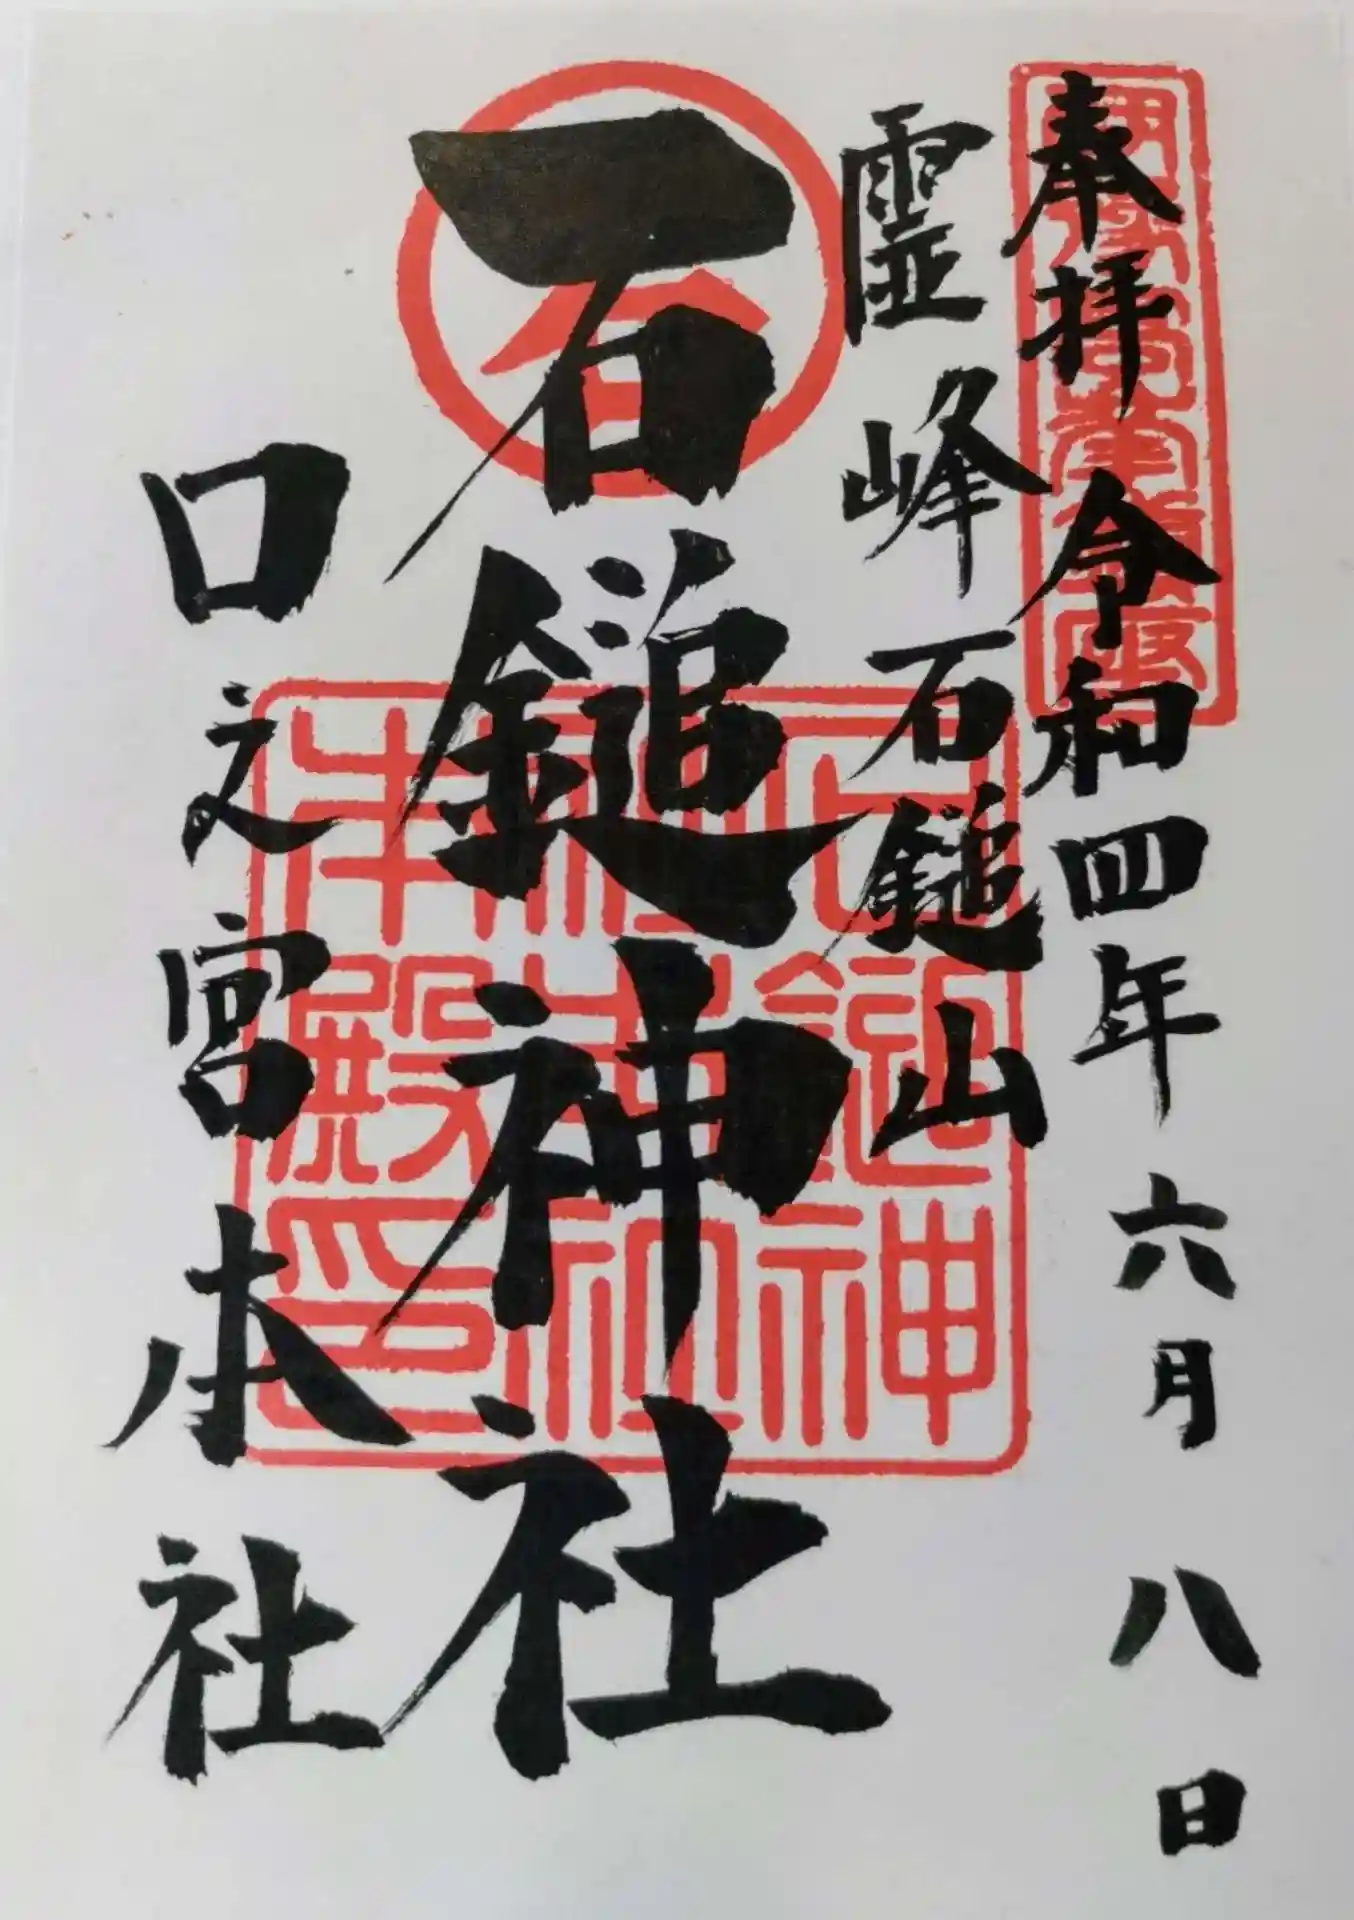 奉拝 令和四年 六月 八日
霊峰石鎚山
石鎚神社
口之宮本社
石鎚神
本殿印